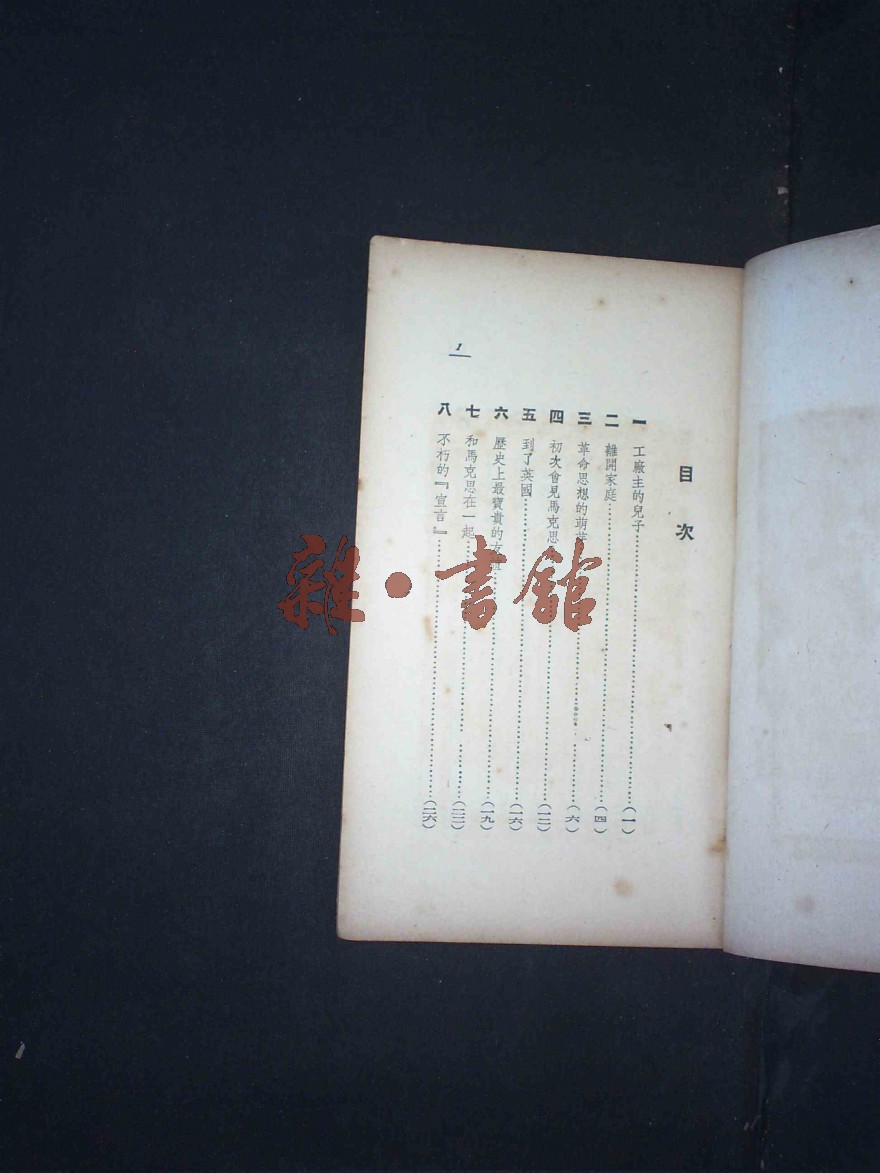 目次
一 工廠主的兒子……(一)
二 離開家庭……(四)
三 革命思想的萌……(六)
四 初次會見馬克思……(一二)
五 到了英國……(一六)
六 歷史上最寶貴的友……(一九)
七 和馬克思在一起……(二三)
八 不朽的『宣言』……(二六)
1
雜·書館